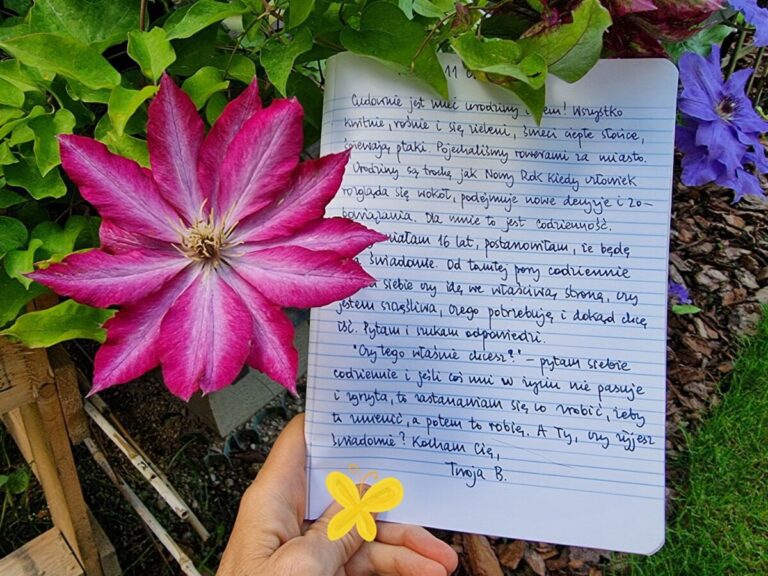 11
Cudownie jest mieć urodziny! Wszystko
kwitnie, rośnie i się zieleni, świeci ciepłe słońce,
śpiewają ptaki. Pojechaliśmy rowerami za miasto.
Urodziny są trochę jak Nowy Rok kiedy człowiek
rozgląda się wokół, podejmuje nowe decyzje i zo-
bowiązania. Dla mnie to jest codzienność.
miałam 16 lat, postanowiłam, że będę
świadomie. Od tamtej pory codziennie
siebie czy idę we właściwą stroną, czy
jestem szczęśliwa, czego potrzebuję i dokąd chcę
iść. Pytam i szukam odpowiedzi.
"Czy tego właśnie chcesz?" – pytam siebie
codziennie i jeśli coś mi w życiu nie pasuje
i zgrzyta, to zastanawiam się co zrobić, żeby
to zmienić, a potem to robię. A Ty, czy żyjesz
świadomie? Kocham Cię,
Twoja B.